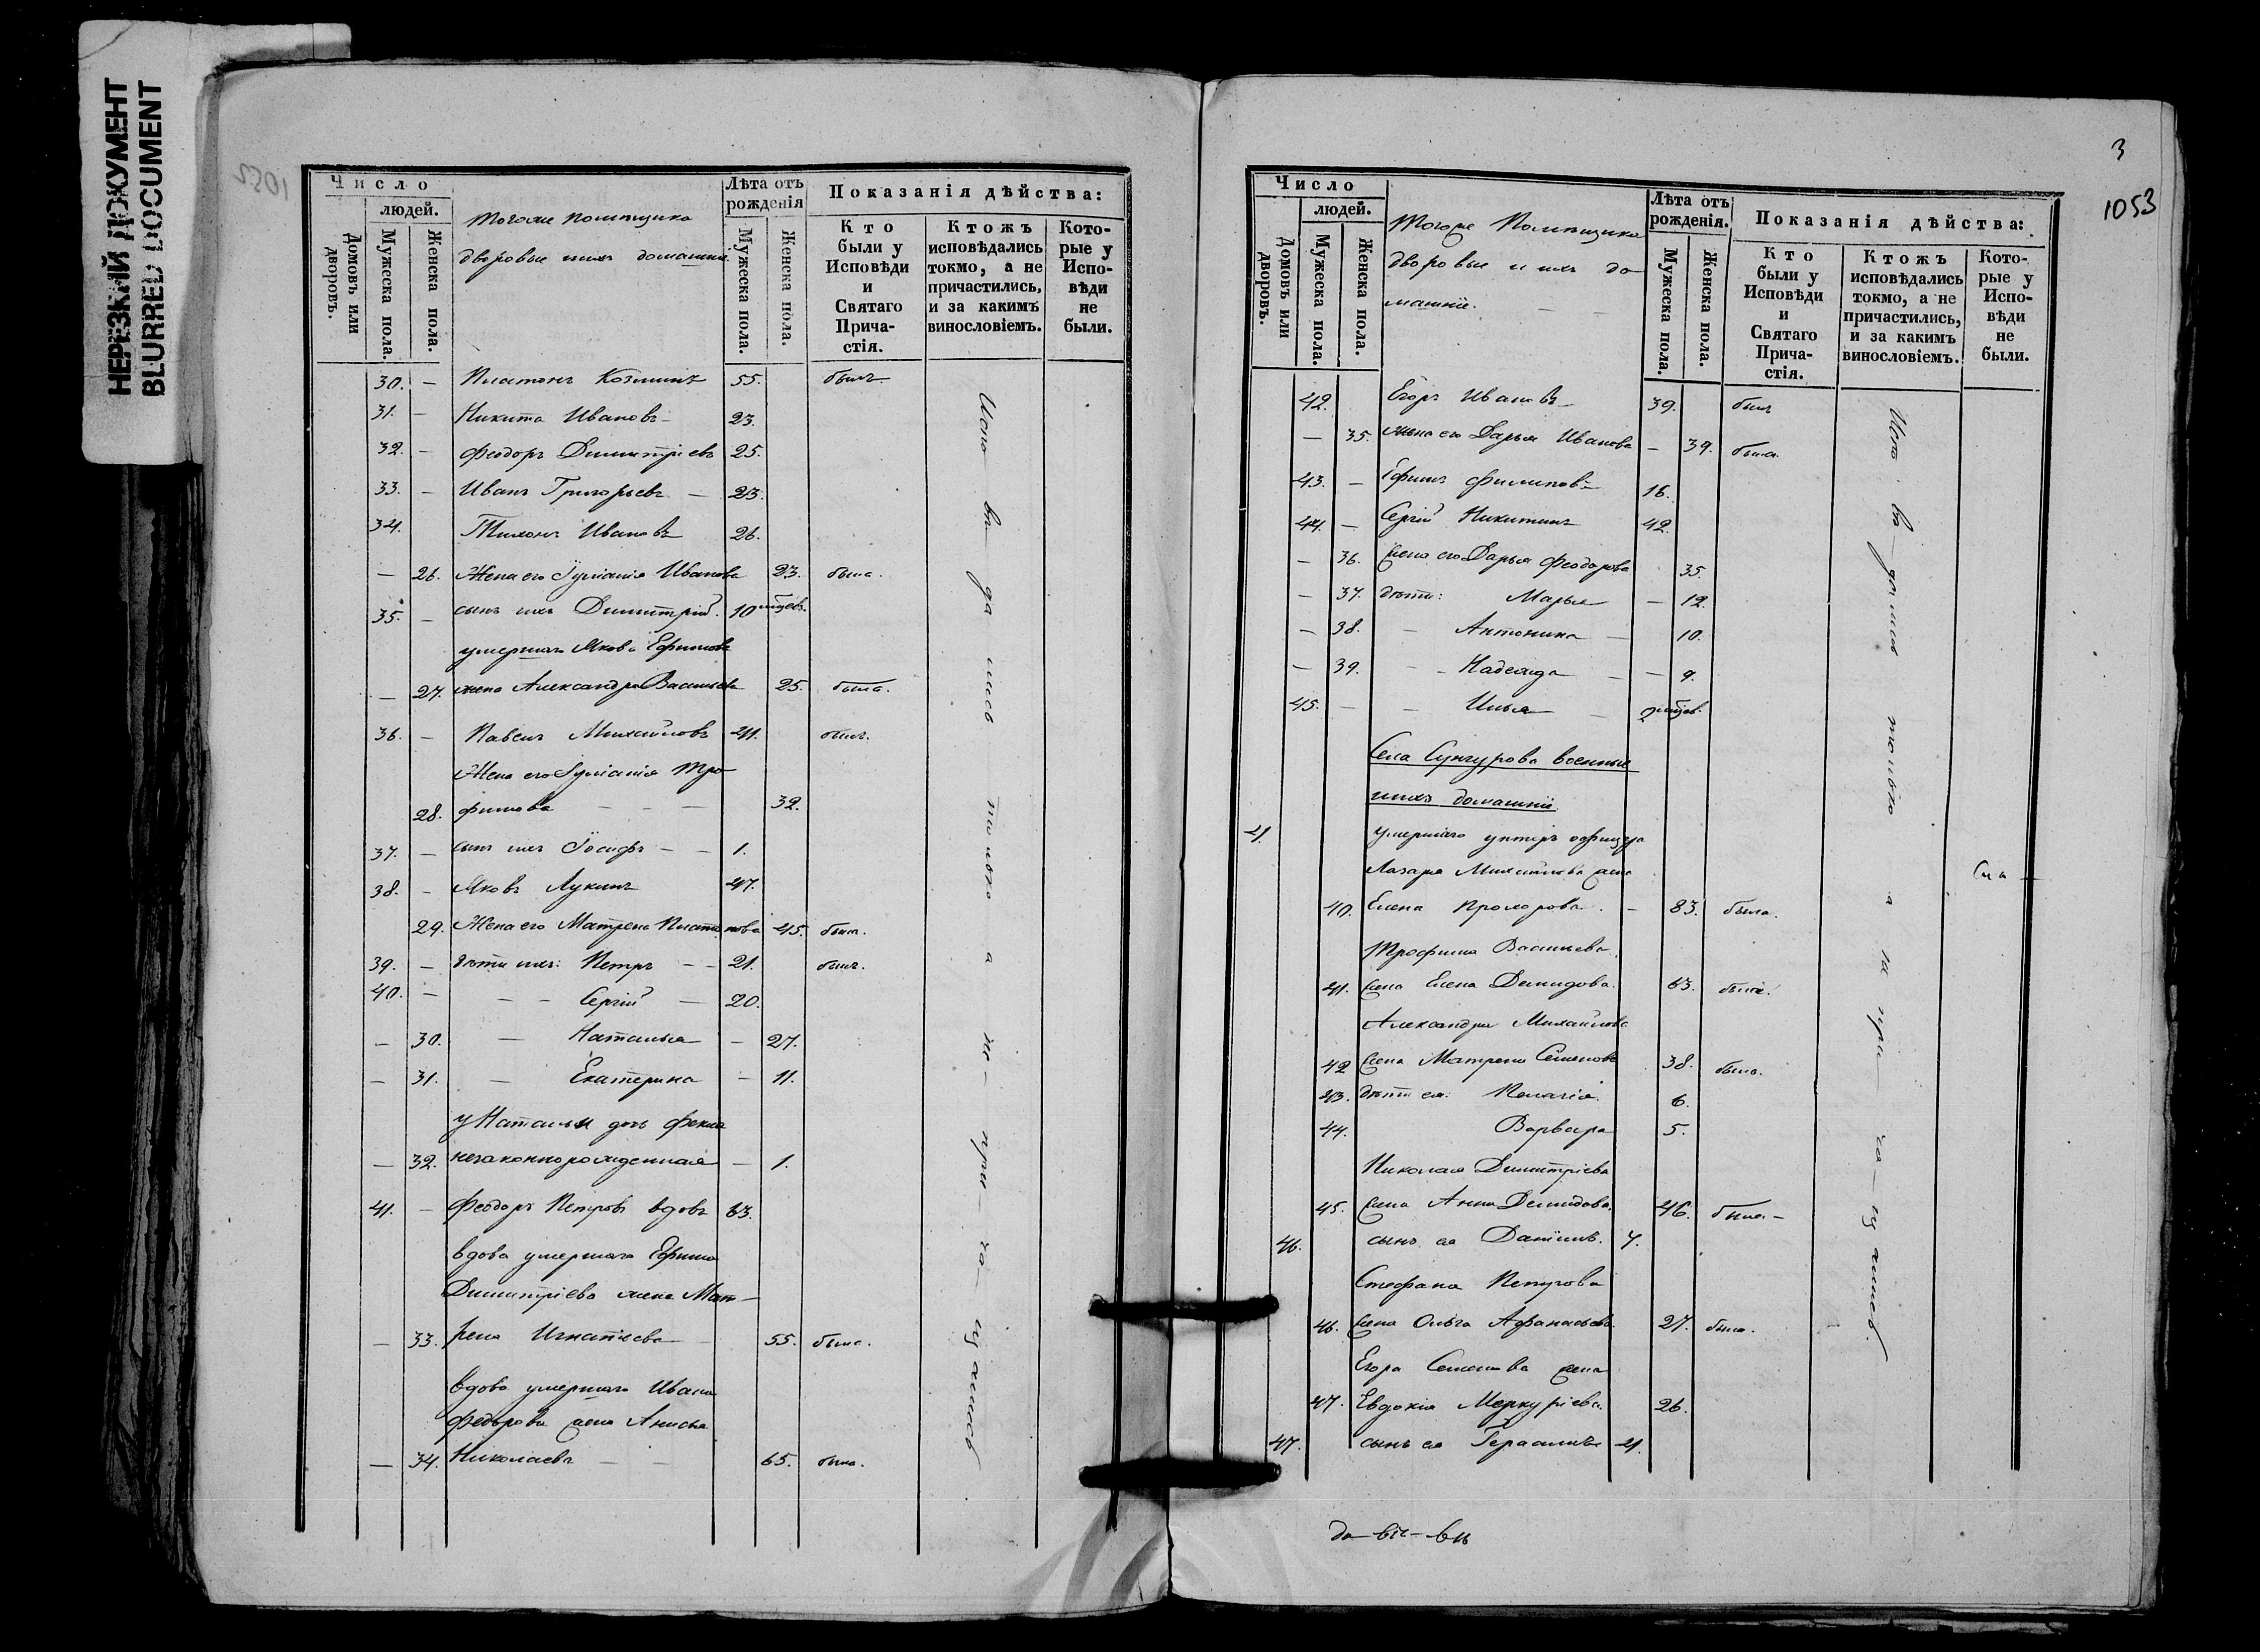 НЕРЕЗКИЙ ДОКУМЕНТ
BLURRED DOCUMENT
Число
людей.
Домовъ или дворовъ.
Мужеска пола.
Женска пола.
Тогоже помѣщика
дворовые и ихъ домашніе
Лѣта отъ рожденія
Мужеска пола.
Женска пола.
Показанія дѣйства:
Кто были у Исповѣди и Святаго Прича-стія.
Ктожъ исповѣдались токмо, а не причастились, и за какимъ винословіемъ.
Кото-рые у Испо-вѣди не были.
30. — Платонъ Козминъ 55. былъ.
31. — Никита Ивановъ 23.
32. — Феодоръ Димитріевъ 25.
33. — Иванъ Григорьевъ — 23.
34. Тихонъ Ивановъ 26.
— 26. Жена его Іуліанія Иванова 23. была.
35. — сынъ ихъ Димитрій. 10 мѣсев.
умершаго Якова Ефимова
— 27. жена Александра Васильева 25. была.
36. — Павелъ Михайловъ 41. былъ.
Жена его Іуліанія Тро
28. фимова — — — 32.
37. — сынъ ихъ Іосифъ — — 1.
38. — Яковъ Лукинъ 47.
29. Жена его Матрена Платонова 45. была.
39. — дѣти ихъ: Петръ — — 21. былъ.
40. — — — Сергій — 20.
— 30. — Наталья — 27.
— 31. — Екатерина — 11.
у Натальи дочь Фекла
— 32. незаконнорожденная — 1.
41. — Феодоръ Петровъ вдовъ 63.
вдова умершаго Ефима
Димитріева жена Мат—
— 33. рена Игнатьева 55. была.
вдова умершаго Ивана
Федорова жена Анисья
— 34. Николаева — — 65. была.
3
1053
Число
людей.
Домовъ или дворовъ.
Мужеска пола.
Женска пола.
Тогоже Помѣщика
дворовые и ихъ до
машніе. — —
Лѣта отъ рожденія.
Мужеска пола.
Женска пола.
Показанія дѣйства:
Кто были у Исповѣди и Святаго Прича-стія.
Ктожъ исповѣдались токмо, а не причастились, и за какимъ винословіемъ.
Кото-рые у Испо-вѣди не были.
42. Егоръ Ивановъ 39. былъ
— 35. жена его Дарья Иванова — 39. была.
43. — Ефимъ Филиповъ 16.
44. — Сергій Никитинъ 42.
— 36. жена его Дарья Феодорова 35.
— 37. дѣти: Марья — 12.
— 38. — Антонина — 10.
— 39. — — Надежда — — 9.
45. — — Илья — 2 мѣсев.
Села Сунгурова военные
и ихъ домашніе
21. умершаго унтеръ офицера
Лазаря Михайлова жена
40. Елена Прохорова. — 83. была.
Трофима Васильева
41. жена Елена Демидова. 63. была.
Александра Михайлова
42 жена Матрена Семенова 38. была.
43. дѣти ея: Пелагія. 6.
44. Варвара 5.
Николая Димитріева
45. жена Анна Демидова. 46. была —
46. сынъ ея Даніилъ. 7.
Стефана Петрова
46. жена Ольга Афанасьева 27. была.
Егора Семенова жена
47. Евдокія Меркуріева. 26.
47. сынъ ея Герасимъ 4.